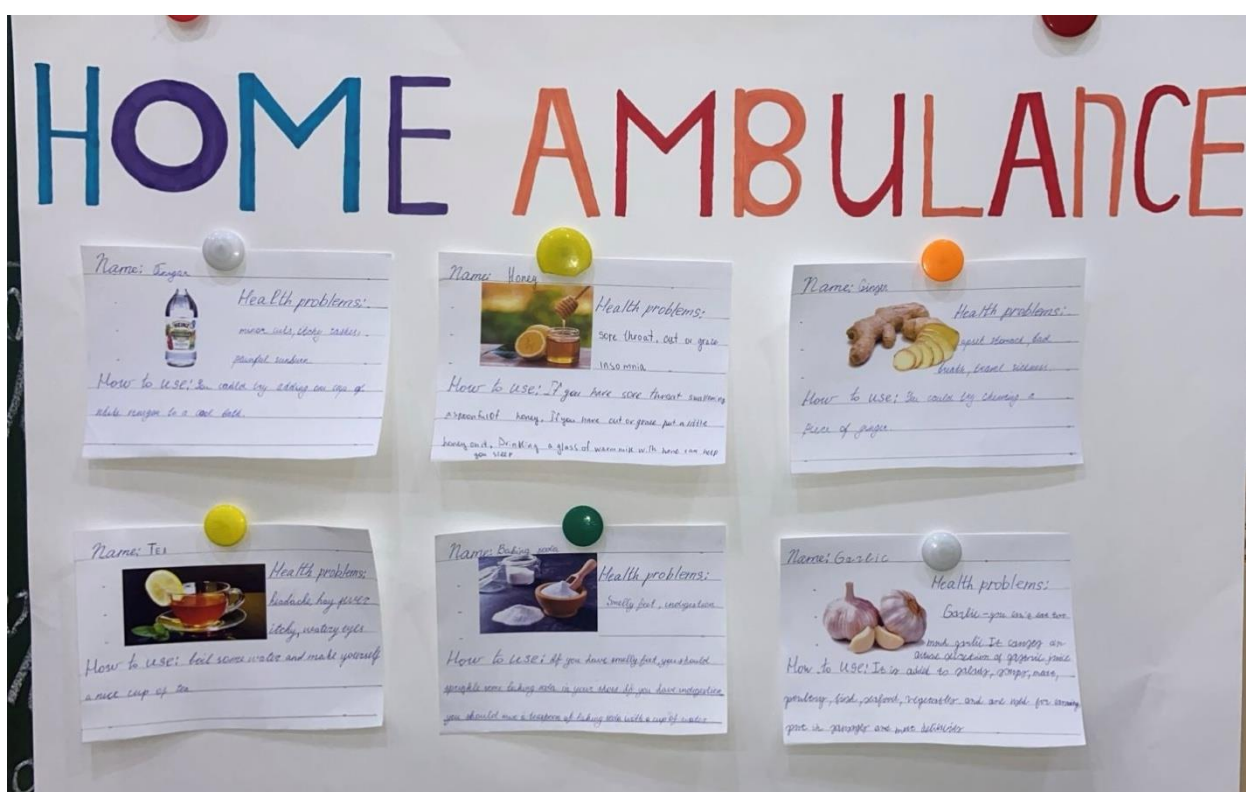 HOME AMBULANCE
Name:
HEINZ
Health problems:
minor cuts, itchy
painful sunburn
How to use: You could try adding one cup of
white to a cool bath.
Name: Honey
Health problems:
sore throat, cut or graze
insomnia
How to use: If you have sore throat swallowing
a spoonful of honey. If you have cut or graze put a little
honey on it. Drinking a glass of warm milk with can help
you sleep
Name: Ginger
Health problems:
upset stomach, bad
breath, travel sickness
How to use: You could try chewing a
piece of ginger
Name: Tea
Health problems:
headache, hay fever
itchy, watery eyes
How to use: boil some water and make yourself
a nice cup of tea
Name: Baking soda
Health problems:
Smelly feet, indigestion
How to use: If you have smelly feet, you should
sprinkle some baking soda in your shoes. If you have indigestion
you should mix a teaspoon of baking soda with a cup of water
Name: Garlic
Health problems:
Garlic - you can't eat too
much garlic. It causes an
active secretion of gastric juice
How to use: It is added to salads, soups, meat,
poultry, fish, vegetables and are
are more